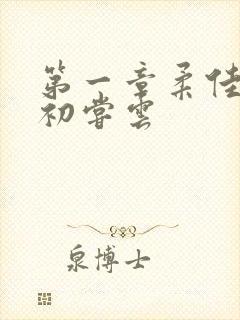 第一章柔佳
初尝雲
泉博士